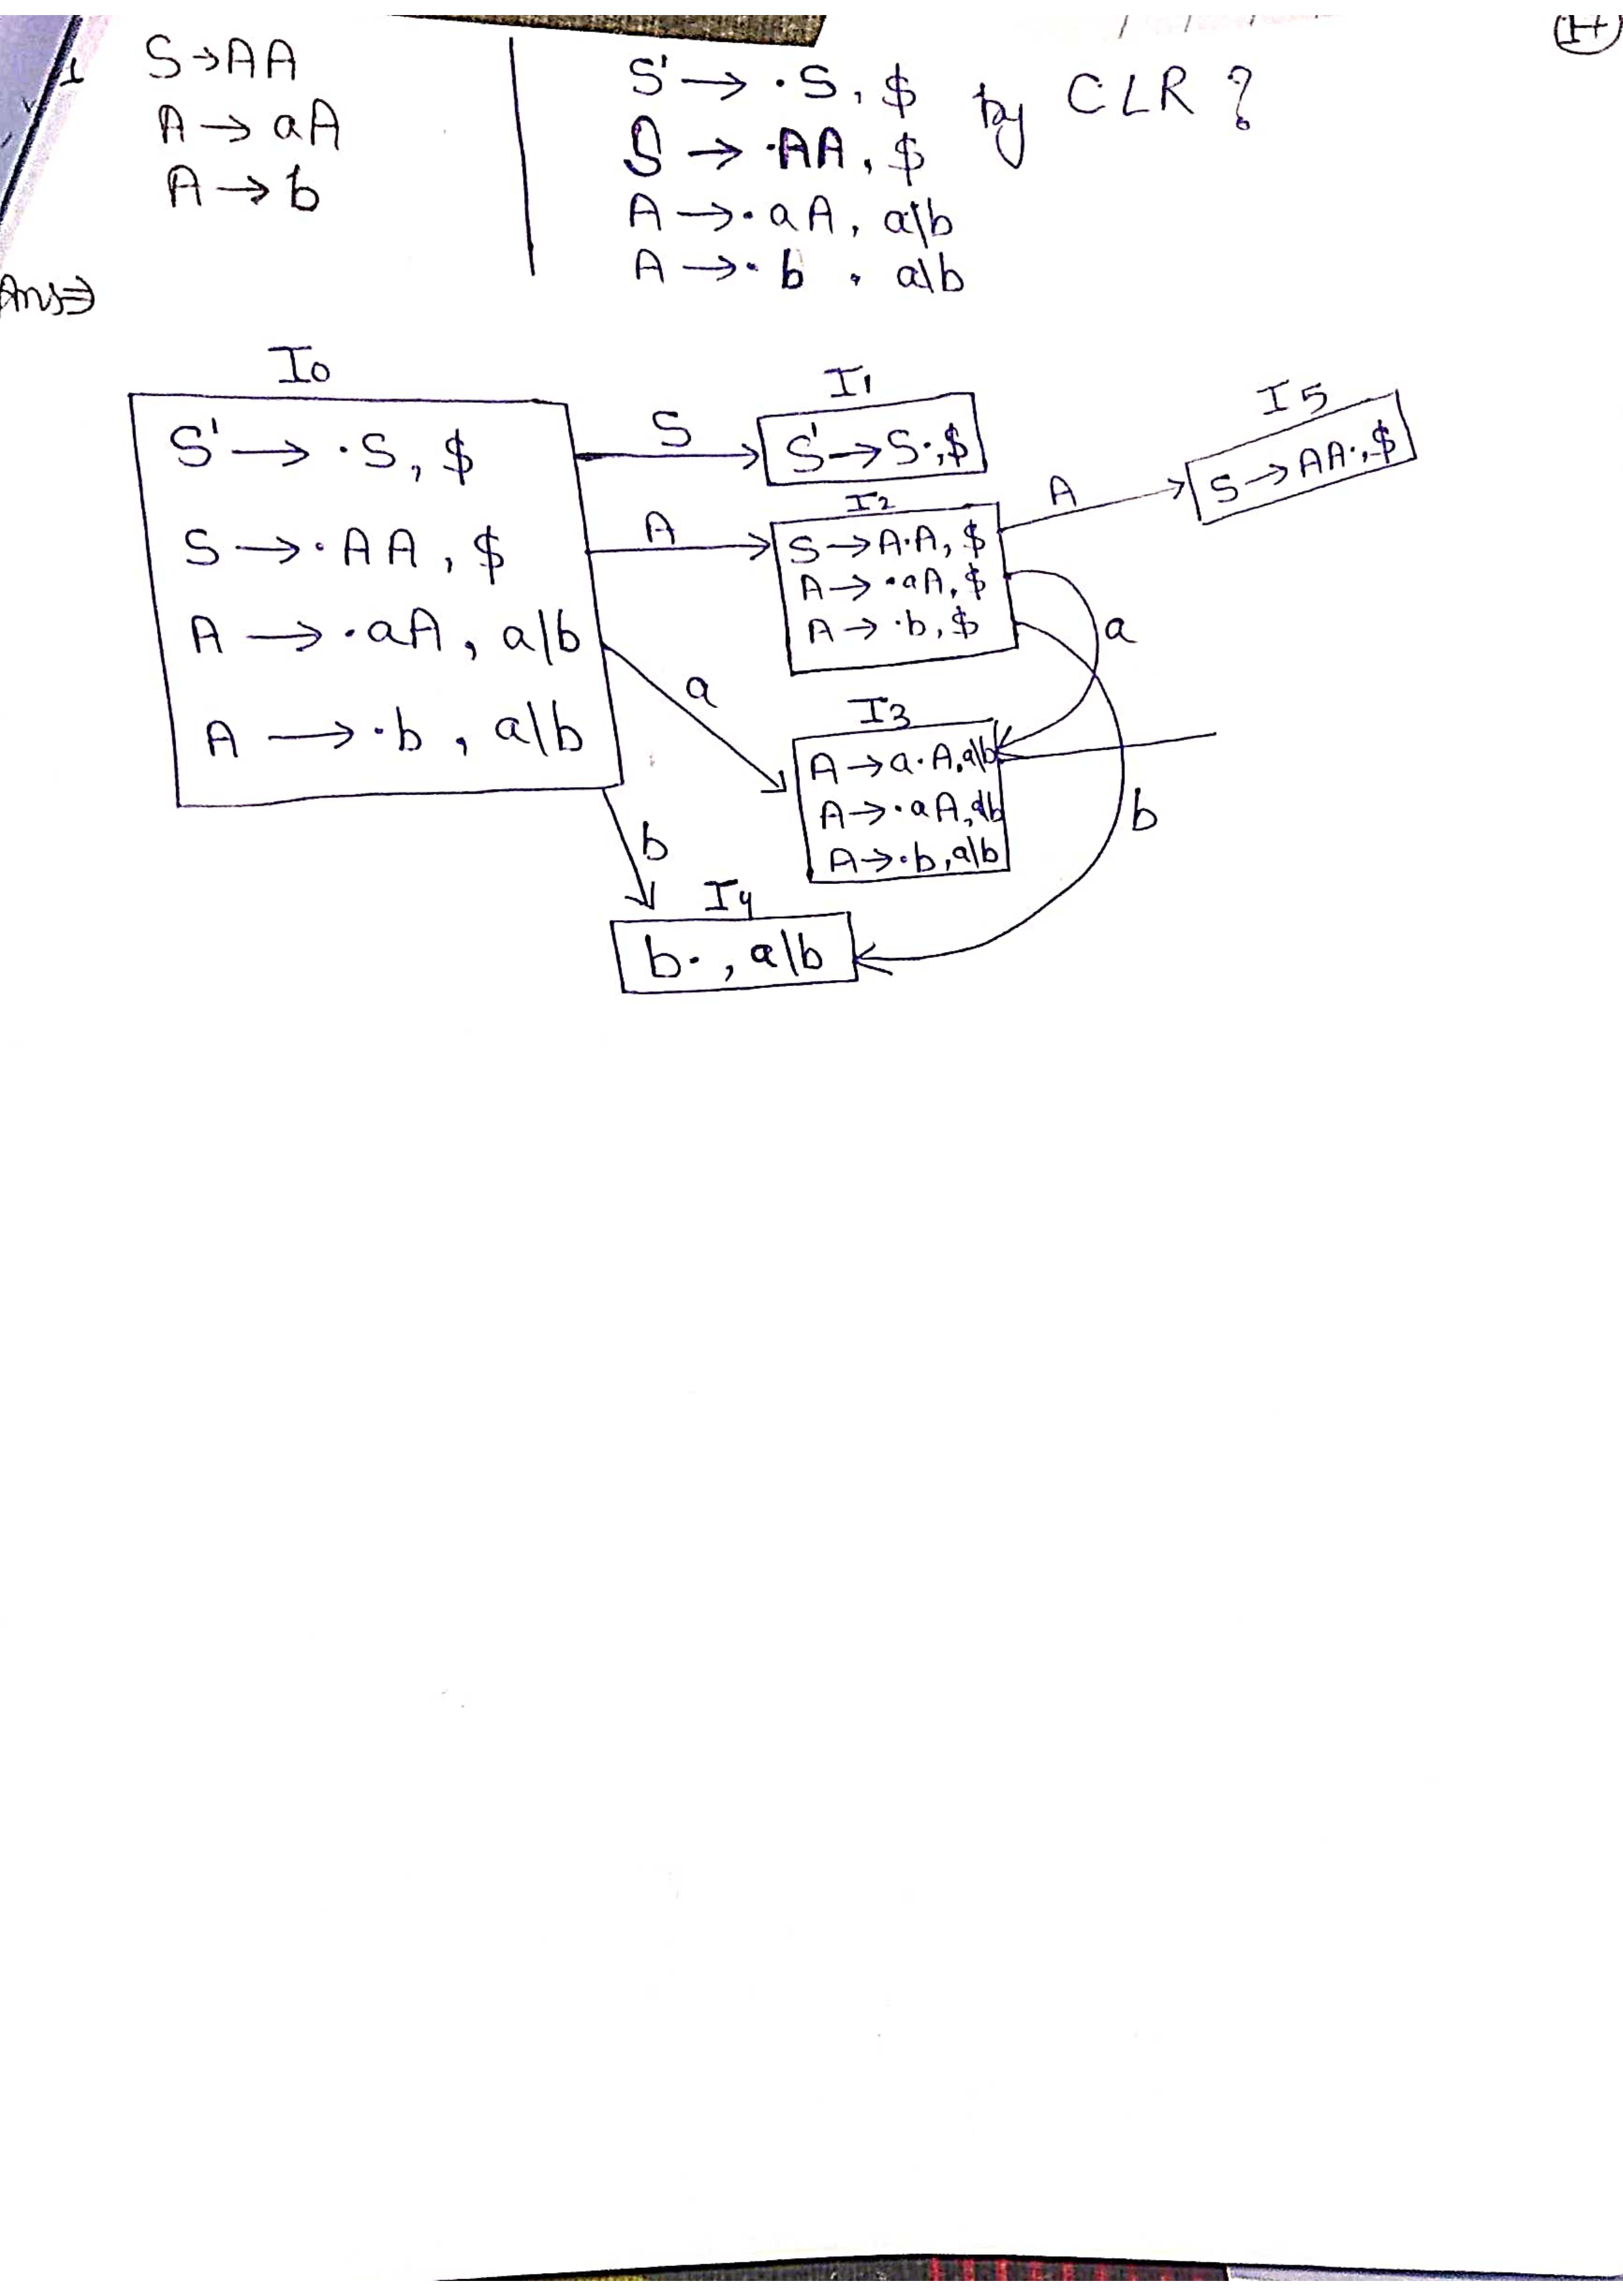 1 S→AA
A→aA
A→b
S'→·S, $ by CLR?
S→·AA, $
A→·aA, a|b
A→·b, a|b
Ans⇒
I0
S'→·S, $
S→·AA, $
A→·aA, a|b
A→·b, a|b
S
I1
S'→S·,$
A
I2
S→A·A, $
A→·aA, $
A→·b, $
A
I5
S→AA·,$
a
a
I3
A→a·A,a|b
A→·aA,a|b
A→·b,a|b
b
b
I4
b·, a|b